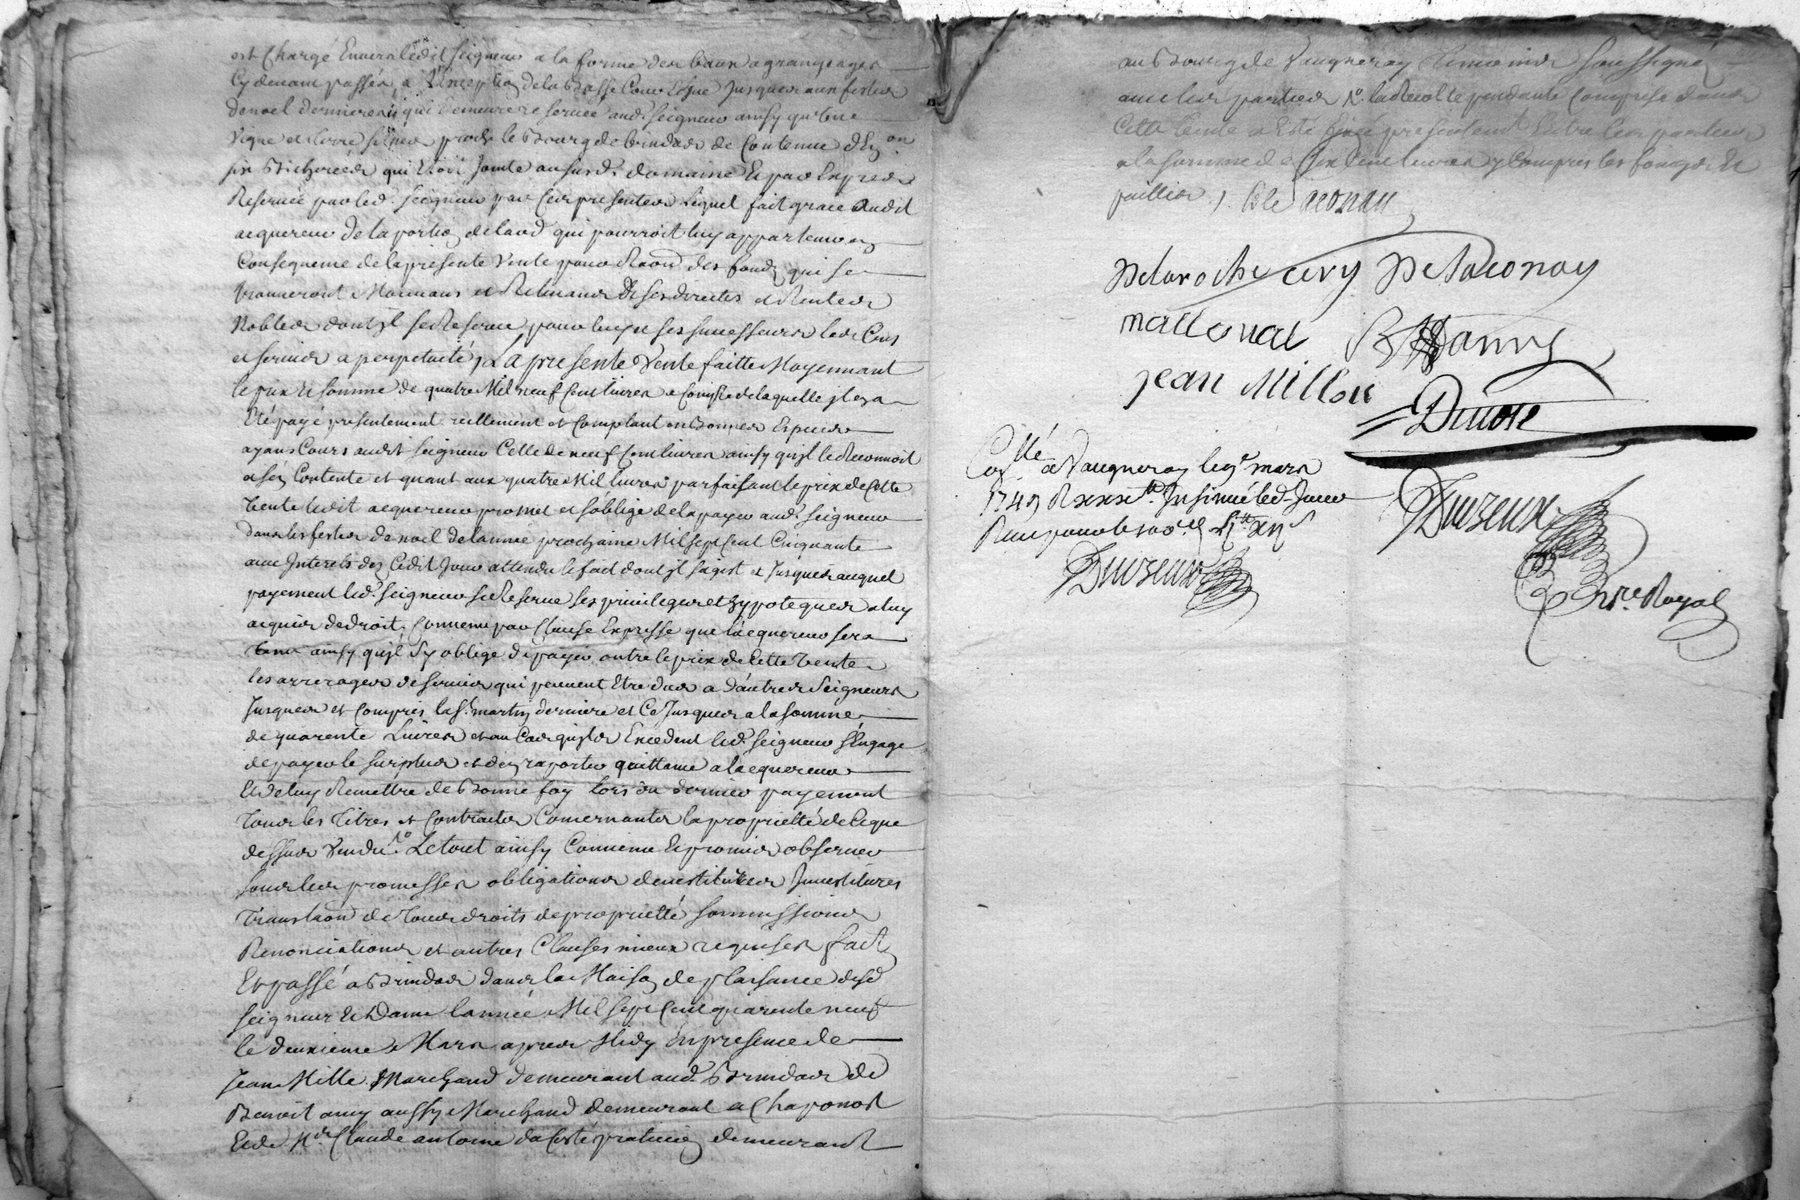 est Chargé Envers ledit Seigneur a la forme des baux a grangeages
Cy devant passés, a L'Exception de la Basse Cour Echue Jusques aux festes
de noel dernieres qui demeure reservée aud. Seigneur ainsy qu'une
Vigne et terre scituée proche le Bourg de brindas de Contenue d'Environ
six Bicherées qui Etoit Jointe au susd. domaine Et par Exprès
Reservée par led. Seigneur par Ces presentes Lequel fait grace Audit
acquereur de la portion de laod qui pourroit luy appartenir en
Consequence de la presente Vente pour Raon des fonds qui se
trouveront Mouvans et Relevans de ses directes et Rentes
Nobles dont jl se Reserve pour luy et ses successeurs les Cens
et servis a perpetuité, La presente Vente faitte Moyennant
le prix et somme de quatre Mil neuf Cent livres a Compte de laquelle jl en a
Eté payé presentement reellement et Comptant en bonnes Especes
ayans Cours audit Seigneur Celle de neuf Cent livres ainsy qu'jl le Reconnoit
a son Contente et quant aux quatre Mil livres parfaisant le prix de Cette
Vente ledit acquereur promet et s'oblige de la payer aud. Seigneur
dans les festes de noel de lannée prochaine Mil sept Cent Cinquante
avec Interets dez Cedit Jour attendu le fait dont jl sagist et Jusques auquel
payement led. Seigneur se Reserve ses privileges et hypoteques a luy
acquis de droit, Convenu par Clause Expresse que l'acquereur sera
tenu ainsy qu'jl s'y oblige de payer outre le prix de Cette Vente
les arrerages de servis qui peuvent Etre dus a d'autres Seigneurs
Jusques et Compris la St. martin derniere et Ce Jusques a la somme
de quarente Livres et au Cas qu'jls Excedent led. Seigneur s'Engage
de payer le surplus et d'en raporter quittance a l'acquereur
Et de luy Remettre de Bonne foy Lors du dernier payement
Tous les Titres et Contractes Concernantes la propriété de Ce que
dessus Vendu. Le tout ainsy Convenu Et promis observer
sous leurs promesses obligations devestitures Jnvestitures
Translaon de Tous droits de propriété soumissions
Renonciations et autres Clauses mieux requises fait
Et passé a Brindas dans la Maison de plaisance desd
Seigneur Et Dame lannée Mil sept Cent quarente neuf
le deuxieme Mars apres Midy En presence de
Jean Mille Marchand demeurant aud. Brindas de
Benoit amy aussy Marchand demeurant a Chaponost
Et de Mr. Claude antoine praticien demeurant
au Bourg de Vaugneray Temoins soussignés
avec les parties la Recolte pendante Comprise dans
Cette Vente a Eté presentement Entre les parties
a la somme de six Cent livres y Compris les foins Et
pailles
Delaroche cery Delaconay
B Damy
jean Millon
Collé a Vaugneray le mars
1749 R Insinué led. Jour
Duvzeux
Duvzeux
Nre. Royal